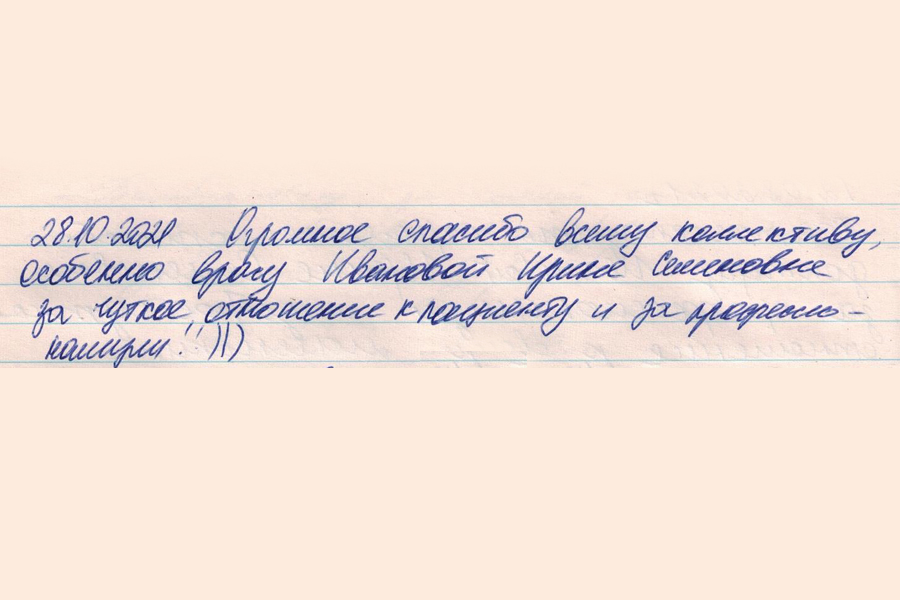 28.10.2021 Огромное спасибо всему коллективу,
особенно врачу Ивановой Ирине Семеновне
за чуткое отношение к пациенту и за професси-
нализм!!! )))